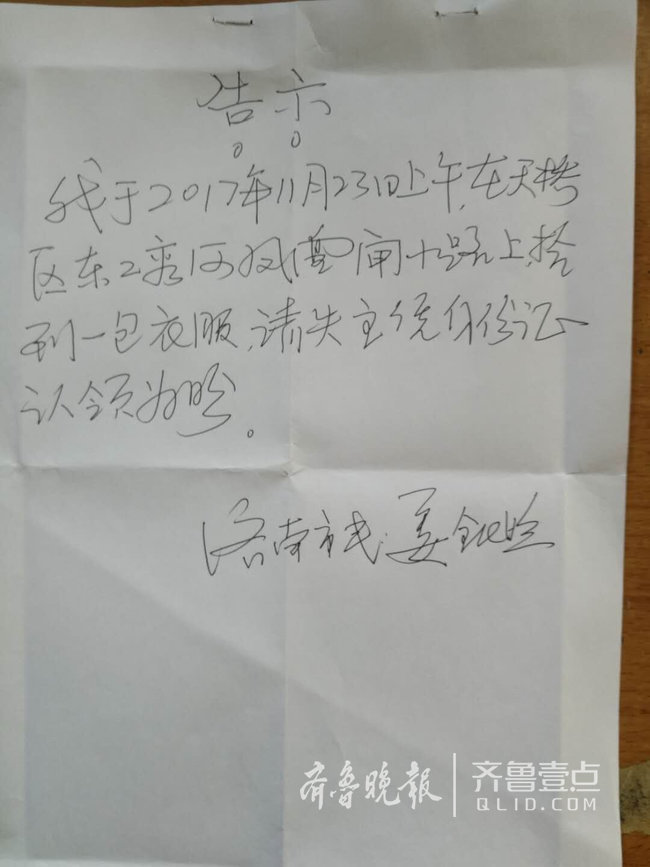 告示
我于2017年11月23日上午,在天桥
区东工商河凤凰闸十路上,拾
到一包衣服,请失主凭身份证
认领为盼。
济南市民:姜
齐鲁晚报 齐鲁壹点
QLID.COM